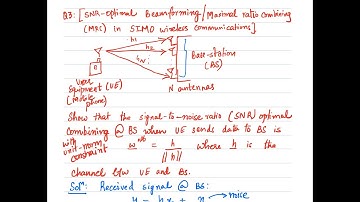 Q3: [SNR-optimal Beamforming/Maximal ratio combining
(MRC) in SIMO wireless communications]
h1
h2
hN
Base-station
(BS)
User
Equipment (UE)
(mobile
phone)
N antennas
Show that the signal-to-noise ratio (SNR) optimal
combining @ BS when UE sends data to BS is
with
unit-norm
constraint
w = h / ||h|| where h is the
channel b/w UE and BS.
Sol: Received signal @ BS:
y = h x + n noise